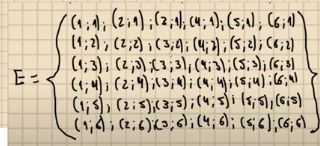 (1;1); (2;1); (2;1); (4;1); (5;1); (6;1)
(1;2); (2;2); (3;2); (4;2); (5;2); (6;2)
E = (1;3); (2;3); (3;3); (4;3); (5;3); (6;3)
(1;4); (2;4); (3;4); (4;4); (5;4); (6;4)
(1;5); (2;5); (3;5); (4;5); (5;5); (6;5)
(1;6); (2;6); (3;6); (4;6); (5;6); (6;6)